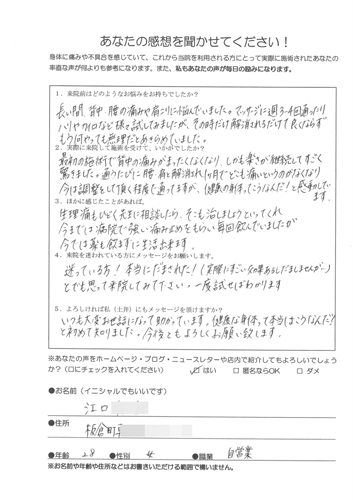 あなたの感想を聞かせてください!
身体に痛みや不具合を感じていて、これから当院を利用される方にとって実際に施術されたあなたの
率直な声が何よりも参考になります。また、私もあなたの声が毎日の励みになります。
1．来院前はどのようなお悩みをお持ちでしたか？
長い間、背中、腰の痛みや肩こりに悩んでいました。マッサージに週3、4回通ったり
ハリやカイロなど様々試してみましたが、その時だけ解消されるだけで良くならず
もう何やっても無理だとあきらめていました。
2．実際に来院して施術を受けて、いかがでしたか？
最初の施術で背中の痛みがまったくなくなり、しかも楽さが継続してすごく
驚きました。通うたびに腰、肩と解消され1ヶ月でどこも痛いというのがなくなり
今は調整をして頂く程度で通ってますが、健康の身体ってこうなんだ！と感動してい
ます。
3．ほかに感じたことがあれば、
生理痛もひどく先生に相談したら、そこも治しましょうといってくれ
今までは病院で強い痛み止めをもらい毎回飲んでいましたが
今では薬も飲まずに生活出来ます。
4．来院を迷われている方にメッセージをお願いします。
迷っている方！本当にだまされた！（実際にすごい効果あるしだましませんが…）
とでも思って来院してみて下さい。一度試せばわかります
5．よろしければ私（土井）にもメッセージを頂けますか？
いつも大変お世話になって助かっています。健康な身体って本当はこうなんだ！
と初めて知りました。今後ともよろしくお願い致します。
※あなたの声をホームページ・ブログ・ニュースレターや店内で紹介してもよろしいでしょう
か？（□にチェックを入れてください） ☑はい □匿名ならOK □ダメ
●お名前（イニシャルでもいいです）
江口
●住所
板倉町
●年齢 28 ●性別 女 ●職業 自営業
※お名前や年齢や住所などはお書きいただける範囲で構いません。